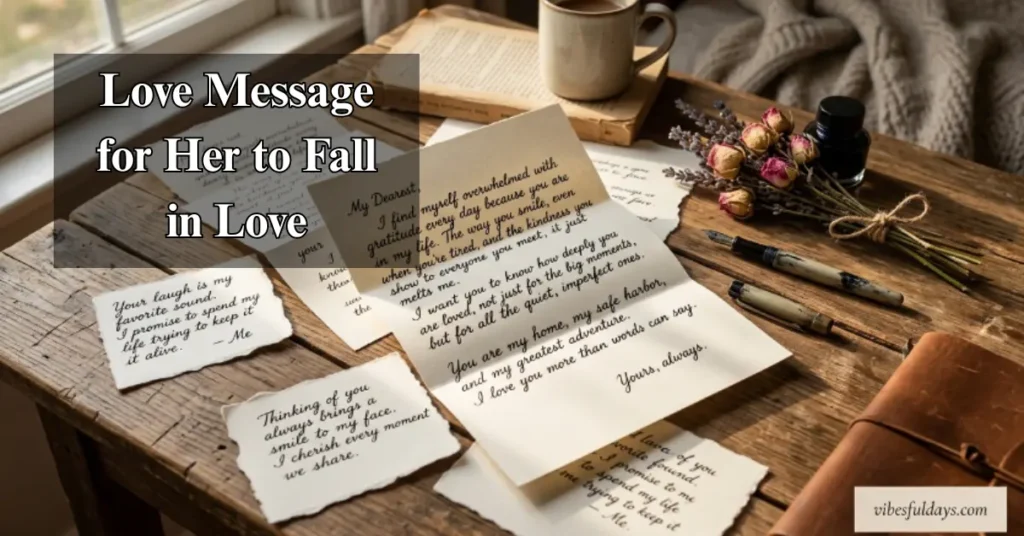 Love Message
for Her to Fall
in Love
My Dearest,
I find myself overwhelmed with
gratitude every day because you are
in my life. The way you smile, even
when you're tired, and the kindness you
show to everyone you meet, it just
melts me.
I want you to know how deeply you
are loved, not just for the big moments,
but for all the quiet, imperfect ones.
You are my home, my safe harbor,
and my greatest adventure.
I love you more than words can say.
Yours, always.
Your laugh is my
favorite sound.
I promise to spend my
life trying to keep it
it alive. — Me
Thinking of you
always brings a
smile to my face.
I cherish every moment
we share.
of you
found.
I promise to me
spend my life
me trying to keep it
— Me.
vibesfuldays.com